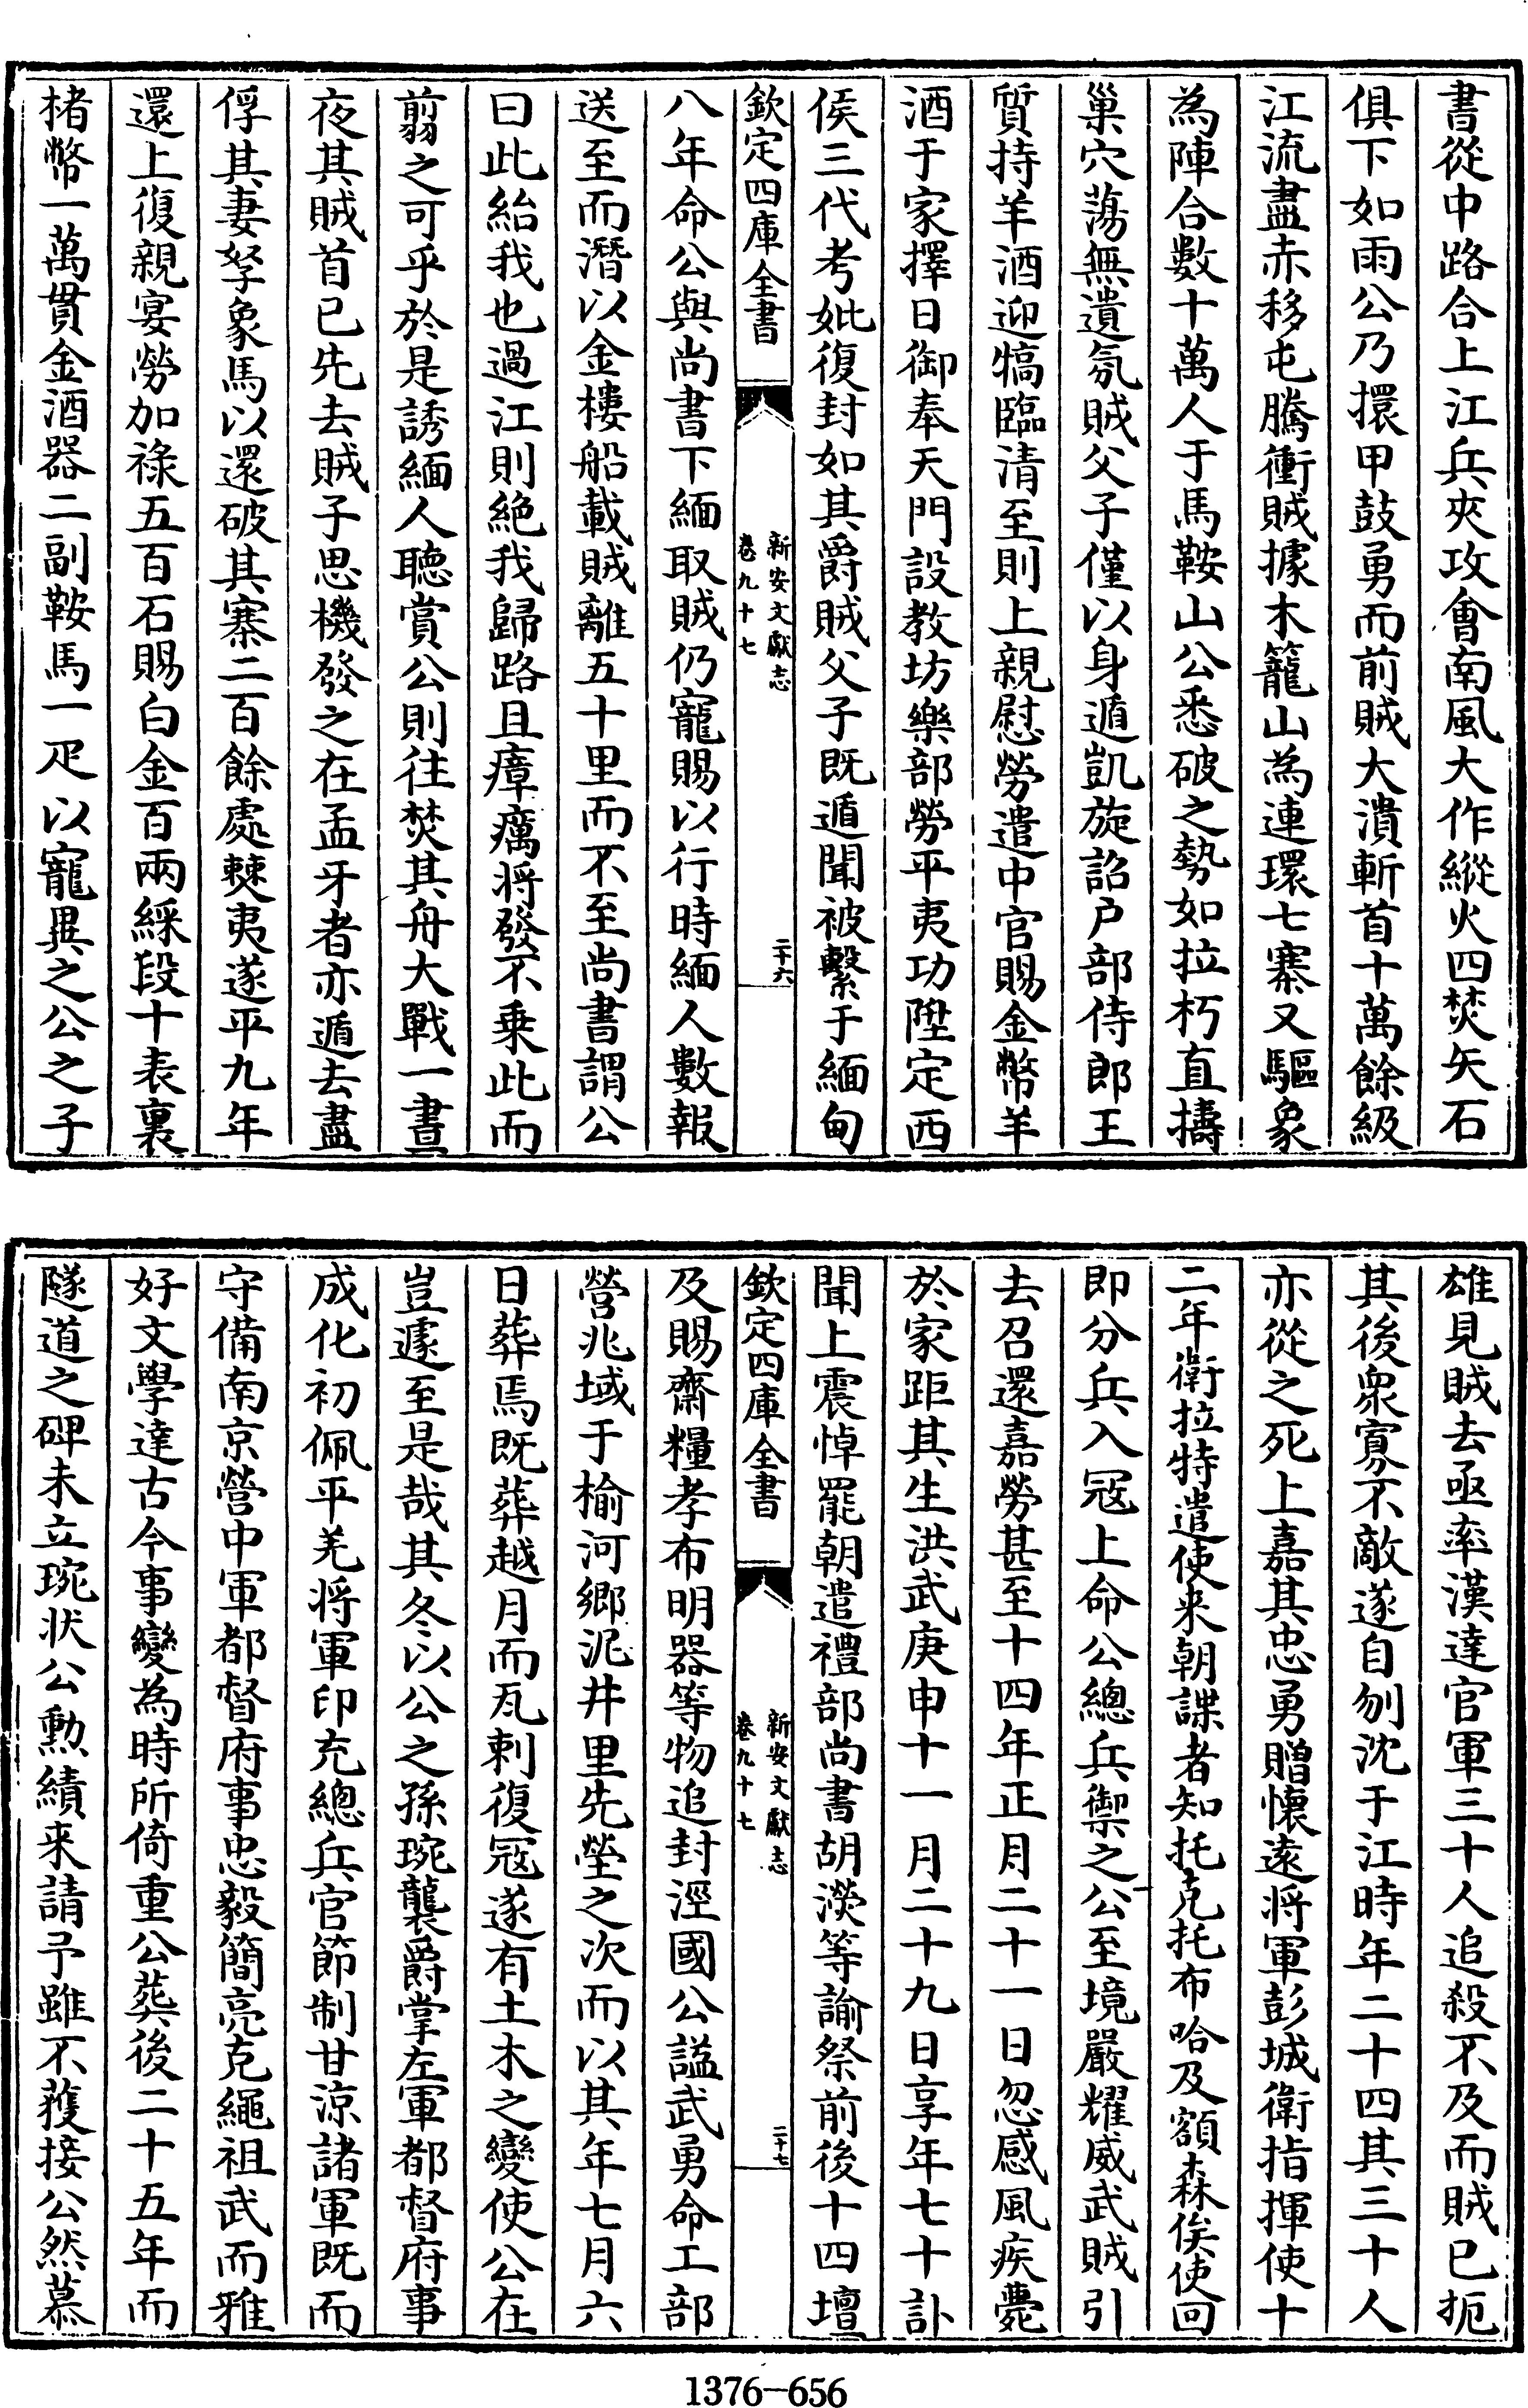 書從中路合上江兵夾攻會南風大作縱火四焚矢石
俱下如雨公乃擐甲鼓勇而前賊大潰斬首十萬餘級
江流盡赤移屯騰衝賊據木籠山為連環七寨又驅象
為陣合數十萬人于馬鞍山公悉破之勢如拉朽直擣
巢穴蕩無遺氛賊父子僅以身遁凱旋詔户部侍郎王
質持羊酒迎犒臨清至則上親慰勞遣中官賜金幣羊
酒于家擇日御奉天門設教坊樂部勞平夷功陞定西
侯三代考妣復封如其爵賊父子既遁聞被繫于緬甸
欽定四庫全書
新安文獻志
卷九十七
二十六
八年命公與尚書下緬取賊仍寵賜以行時緬人數報
送至而潛以金樓船載賊離五十里而不至尚書謂公
曰此紿我也過江則絶我歸路且瘴癘将發不乗此而
翦之可乎於是誘緬人聽賞公則往焚其舟大戰一晝
夜其賊首已先去賊子思機發之在孟牙者亦遁去盡
俘其妻孥象馬以還破其寨二百餘處僰夷遂平九年
還上復親宴勞加祿五百石賜白金百兩綵段十表裏
楮幣一萬貫金酒器二副鞍馬一疋以寵異之公之子
雄見賊去亟率漢達官軍三十人追殺不及而賊已扼
其後衆寡不敵遂自刎沈于江時年二十四其三十人
亦從之死上嘉其忠勇贈懐逺将軍彭城衛指揮使十
二年衛拉特遣使来朝諜者知托克托布哈及額森俟使回
即分兵入冦上命公總兵禦之公至境嚴耀威武賊引
去召還嘉勞甚至十四年正月二十一日忽感風疾薨
於家距其生洪武庚申十一月二十九日享年七十訃
聞上震悼罷朝遣禮部尚書胡濙等諭祭前後十四壇
欽定四庫全書
新安文獻志
卷九十七
二十七
及賜齋糧孝布明器等物追封涇國公諡武勇命工部
營兆域于榆河鄉泥井里先塋之次而以其年七月六
日葬焉既葬越月而瓦剌復冦遂有土木之變使公在
豈遽至是哉其冬以公之孫琬襲爵掌左軍都督府事
成化初佩平羌将軍印充總兵官節制甘涼諸軍既而
守備南京營中軍都督府事忠毅簡亮克繩祖武而雅
好文學達古今事變為時所倚重公葬後二十五年而
隧道之碑未立琬状公勲績来請予雖不獲接公然慕
1376—656